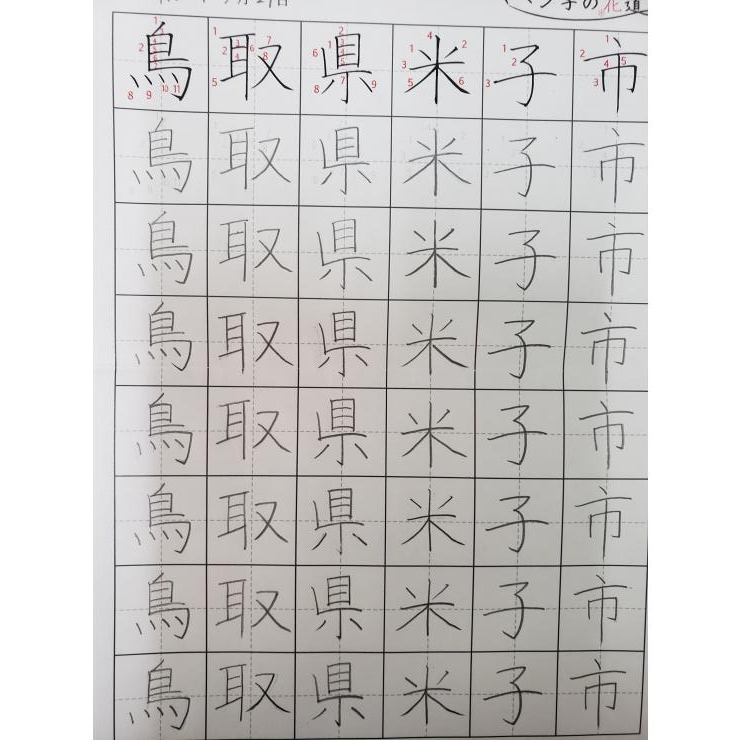 ペン字の花道
鳥取県米子市
鳥取県米子市
鳥取県米子市
鳥取県米子市
鳥取県米子市
鳥取県米子市
鳥取県米子市
鳥取県米子市